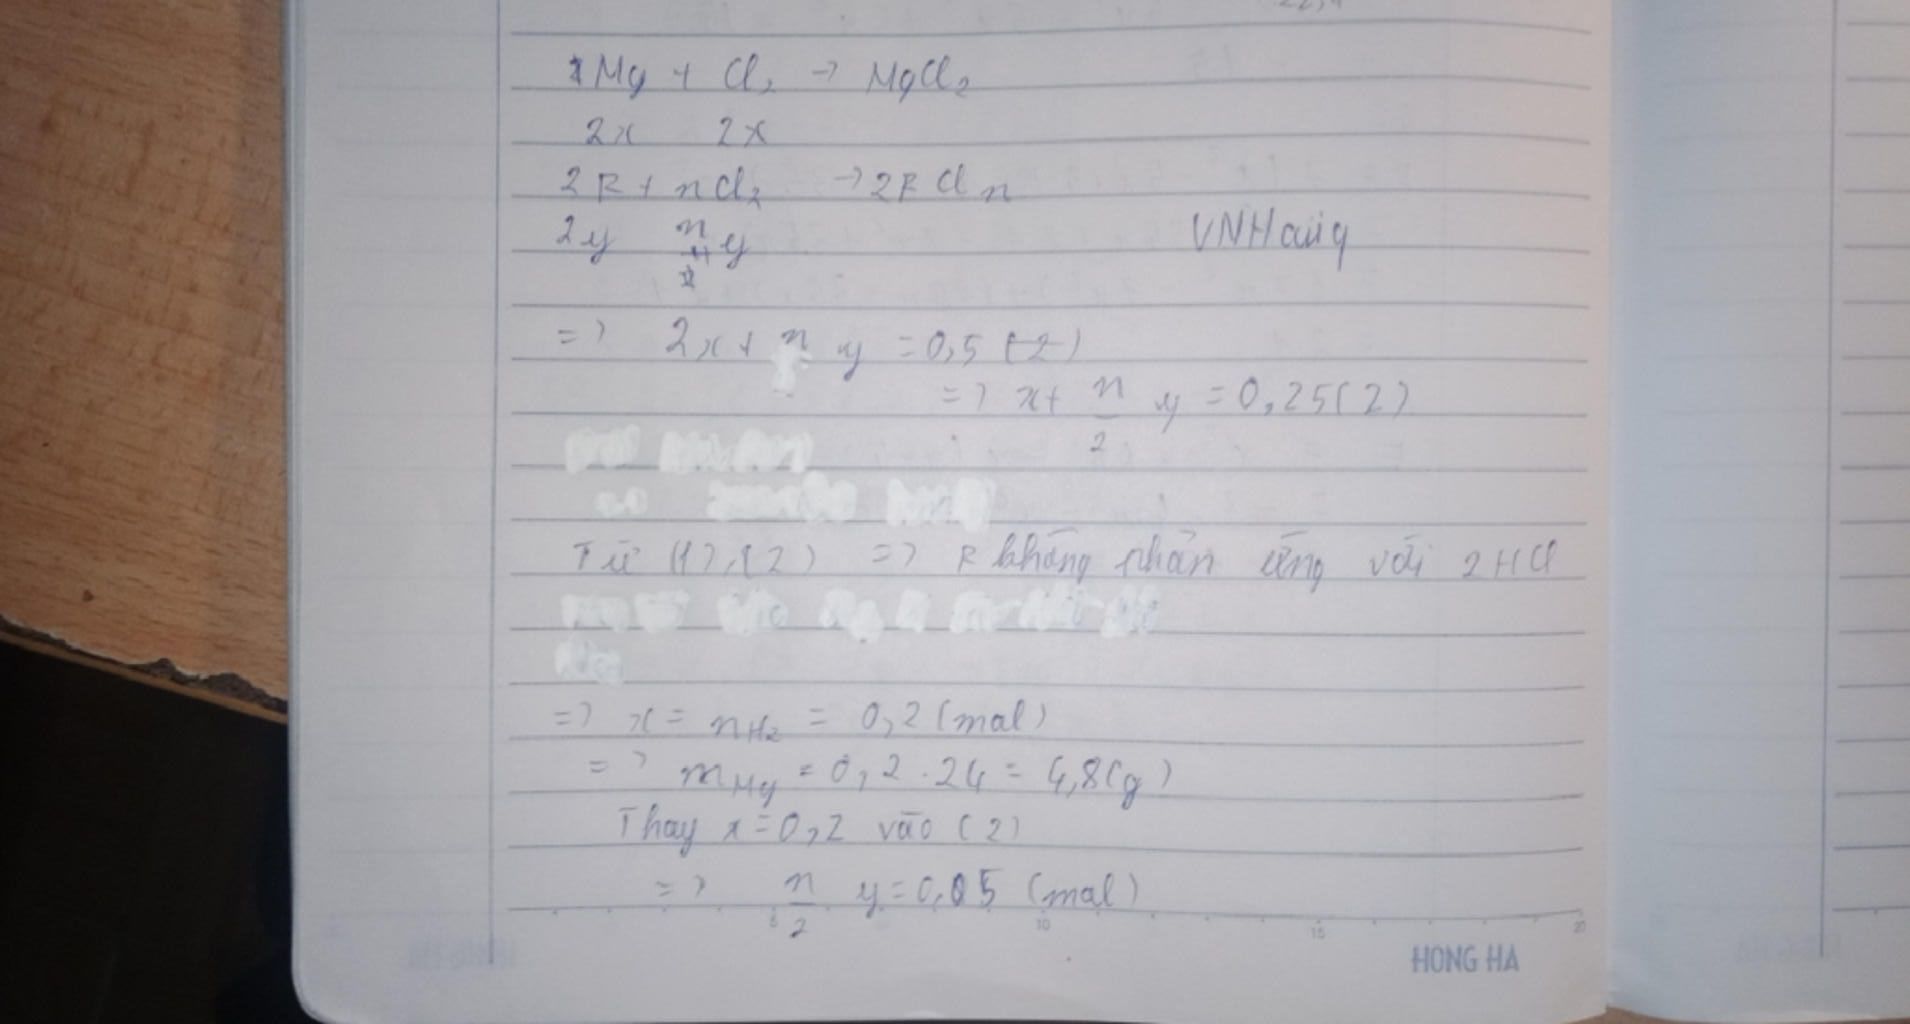 Mg + Cl₂ → MgCl₂
2x 2x
2R + nCl₂ → 2RCln
2y n y
VNHaiig
=> 2x + n y = 0,5 (2)
=> x + n/2 y = 0,25 (2)
Từ (1), (2) => R không phản ứng với 2HCl
=> x = nH₂ = 0,2 (mol)
=> mMg = 0,2 . 24 = 4,8 (g)
Thay x = 0,2 vào (2)
=> n/2 y = 0,05 (mol)
5 10 15 20
HONG HA